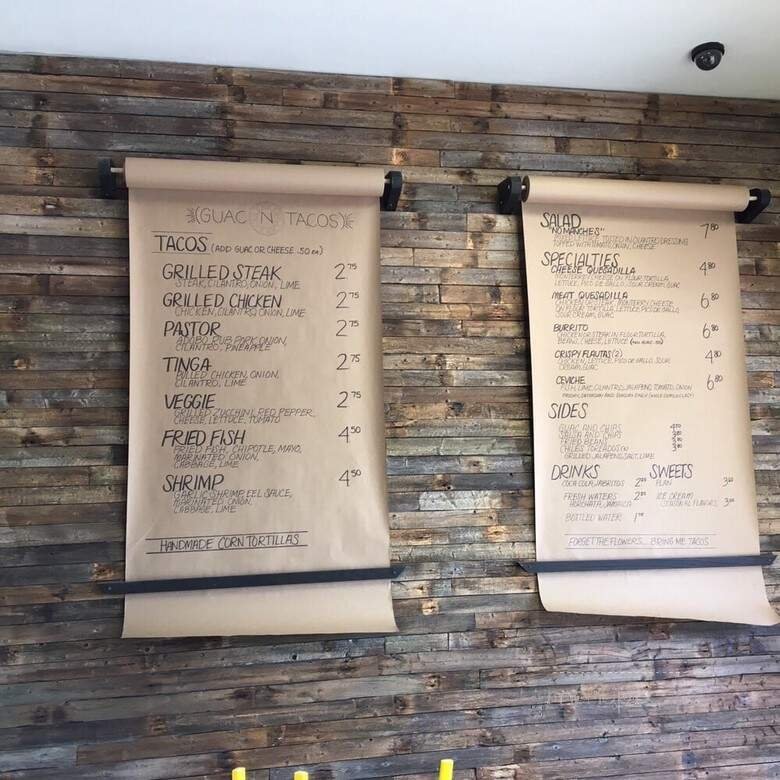 (GUAC N TACOS)
TACOS (ADD GUAC OR CHEESE .50 ea)
GRILLED STEAK 2.75
STEAK, CILANTRO, ONION, LIME
GRILLED CHICKEN 2.75
CHICKEN, CILANTRO, ONION, LIME
PASTOR 2.75
ADOBO RUB PORK, ONION,
CILANTRO, PINEAPPLE
TINGA 2.75
PULLED CHICKEN, ONION,
CILANTRO, LIME
VEGGIE 2.75
GRILLED ZUCCHINI, RED PEPPER,
CHEESE, LETTUCE, TOMATO
FRIED FISH 4.50
FRIED FISH, CHIPOTLE, MAYO,
MARINATED ONION,
CABBAGE, LIME
SHRIMP 4.50
GARLIC SHRIMP, EEL SAUCE,
MARINATED ONION,
CABBAGE, LIME
HANDMADE CORN TORTILLAS
SALAD
"NO MANCHES" 7.80
LETTUCE TOSSED IN CILANTRO DRESSING
TOPPED WITH TOMATO, ONION, CHEESE
SPECIALTIES
CHEESE QUESADILLA 4.80
MONTERREY CHEESE ON FLOUR TORTILLA,
LETTUCE, PICO DE GALLO, SOUR CREAM, GUAC
MEAT QUESADILLA 6.80
CHICKEN OR STEAK, MONTERREY CHEESE
ON FLOUR TORTILLA, LETTUCE, PICO DE GALLO,
SOUR CREAM, GUAC
BURRITO 6.80
CHICKEN OR STEAK IN FLOUR TORTILLA,
BEANS, CHEESE, LETTUCE
CRISPY FLAUTAS (2) 4.80
CHICKEN, LETTUCE, PICO DE GALLO, SOUR
CREAM, GUAC
CEVICHE 6.80
FISH, LIME, CILANTRO, JALAPEÑO, TOMATO, ONION
SIDES
GUAC AND CHIPS
SALSA AND CHIPS
FRIED BEANS
CHILES TOREADOS
GRILLED JALAPEÑOS, SALT, LIME
DRINKS
COCA COLA, JARRITOS
FRESH WATERS
HORCHATA, JAMAICA
BOTTLED WATER
SWEETS
FLAN
ICE CREAM
SEASONAL FLAVORS
FORGET THE FLOWERS... BRING ME TACOS